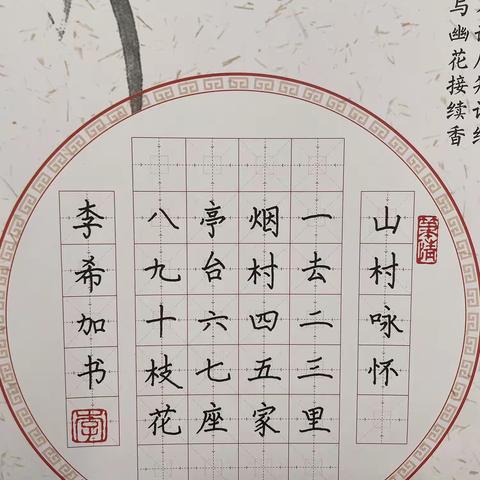 与幽花接续香
山村咏怀
一去二三里
烟村四五家
亭台六七座
八九十枝花
李希加书